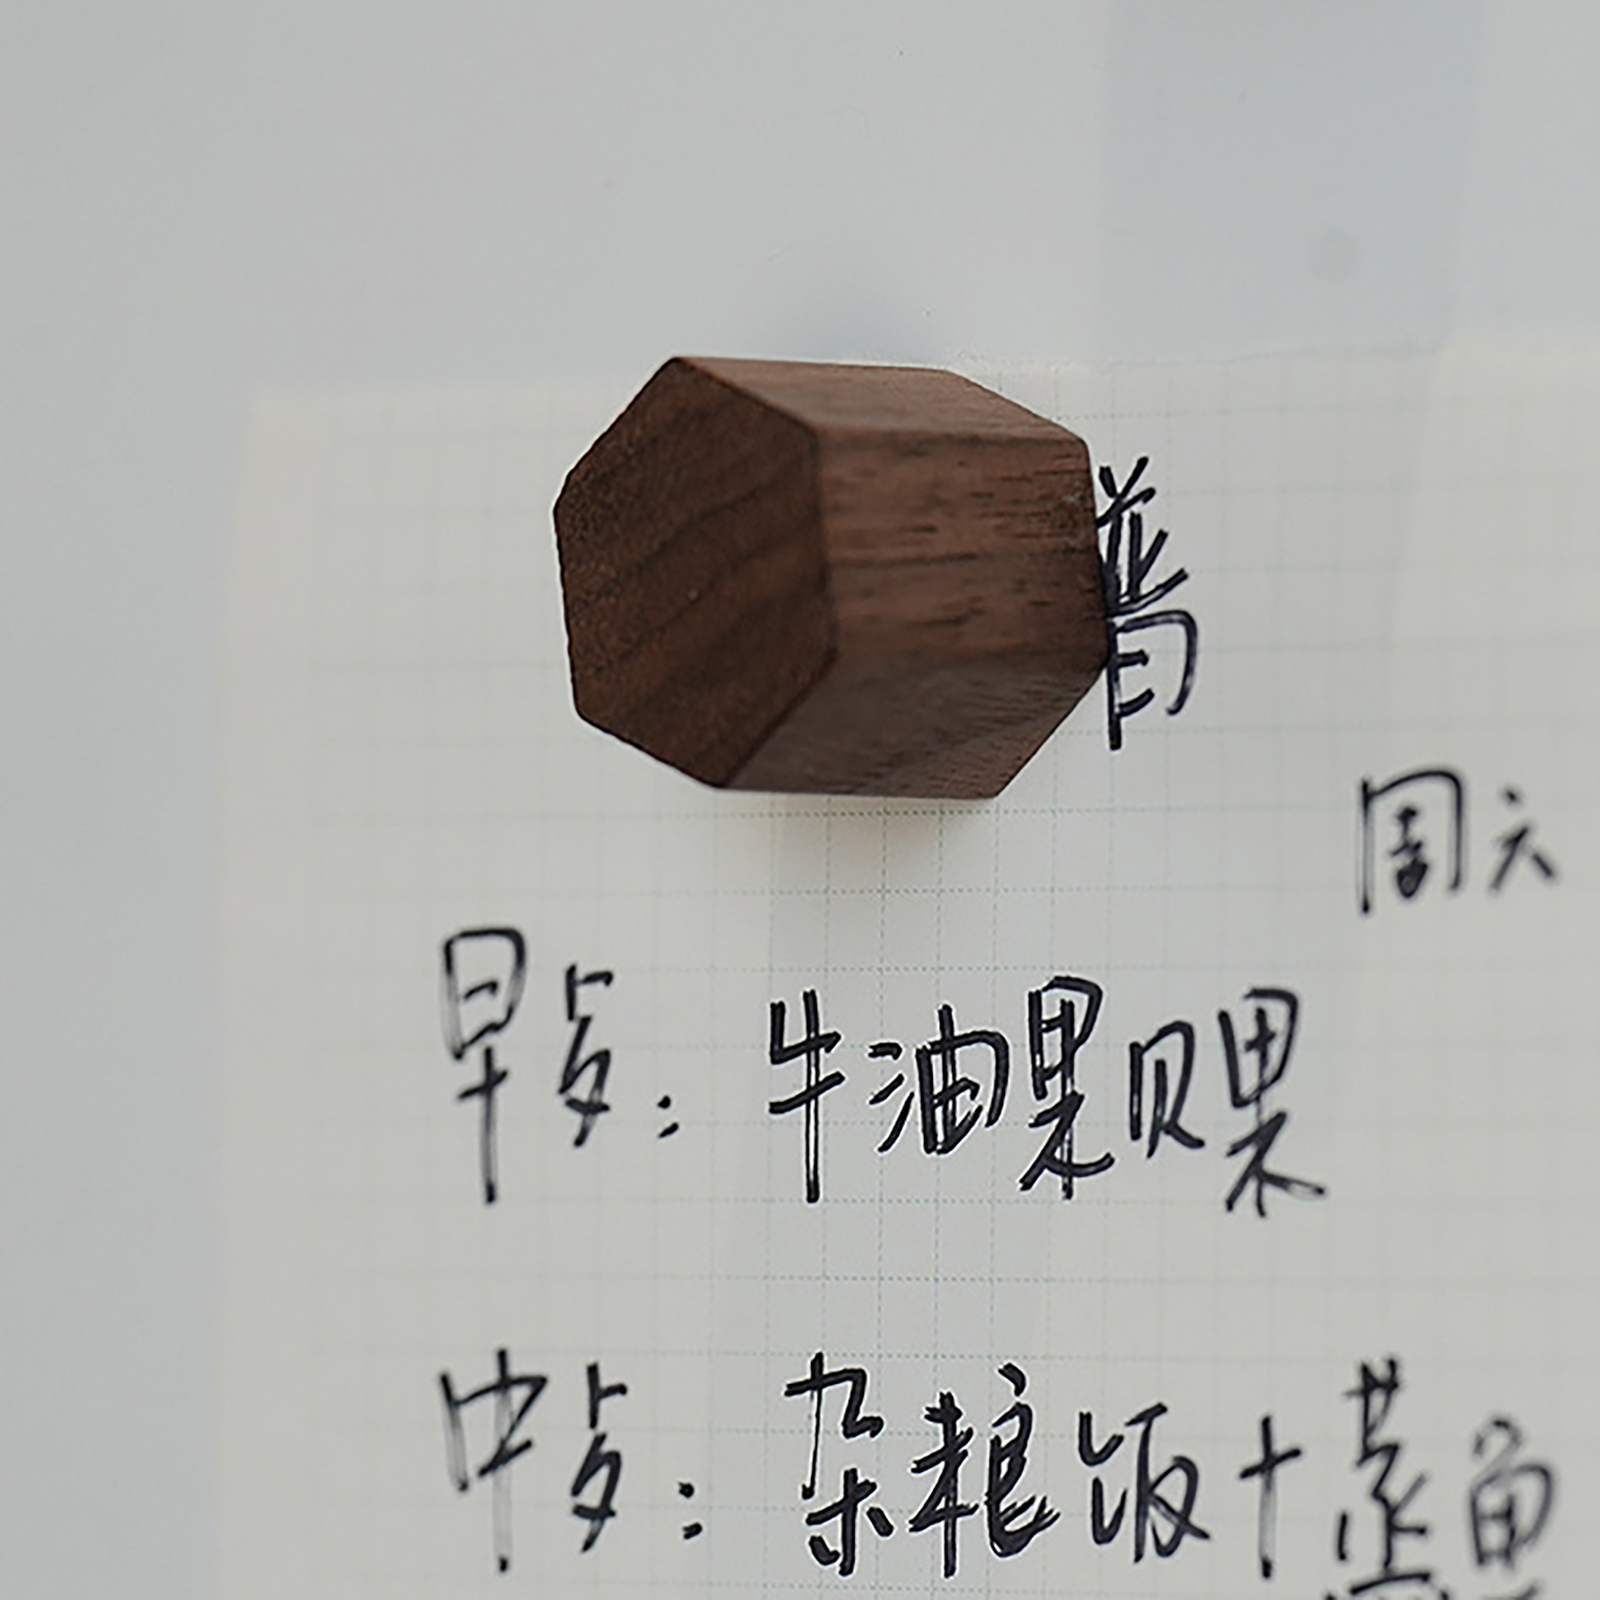 周六
早歺：牛油果贝果
中歺：杂粮饭+蒸鱼